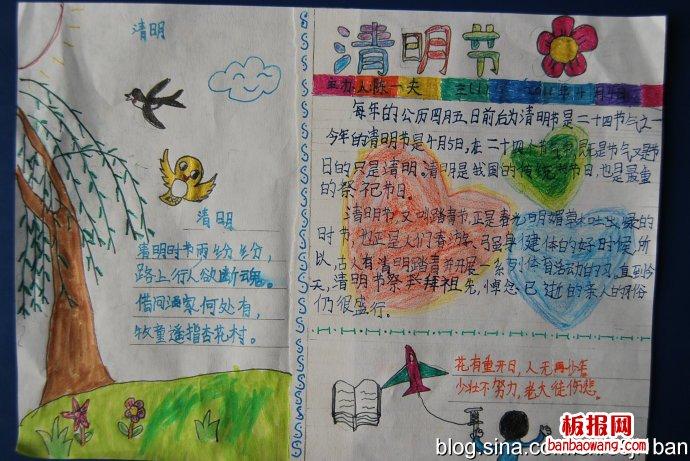 清明
清明
清明时节雨纷纷，
路上行人欲断魂。
借问酒家何处有，
牧童遥指杏花村。
清明节
主办人陈一夫
每年的公历四月五日前后为清明节是二十四节气之一
今年的清明节是4月5日，在二十四节气中，既是节气又是节
日的只是清明。清明是我国的传统节日，也是最重
的祭祀节日。
清明节，又叫踏青节，正是春光明媚草木吐绿的
时节，也正是人们春游、强身健体的好时候，所
以，古人有清明踏青并开展一系列体育活动的习，直到今
天，清明节祭我拜祖先，悼念已逝的亲人的习俗
仍很盛行。
花有重开日，人无再少年。
少壮不努力，老大徒伤悲。
板报网
banbaowang.com
blog.sina.com